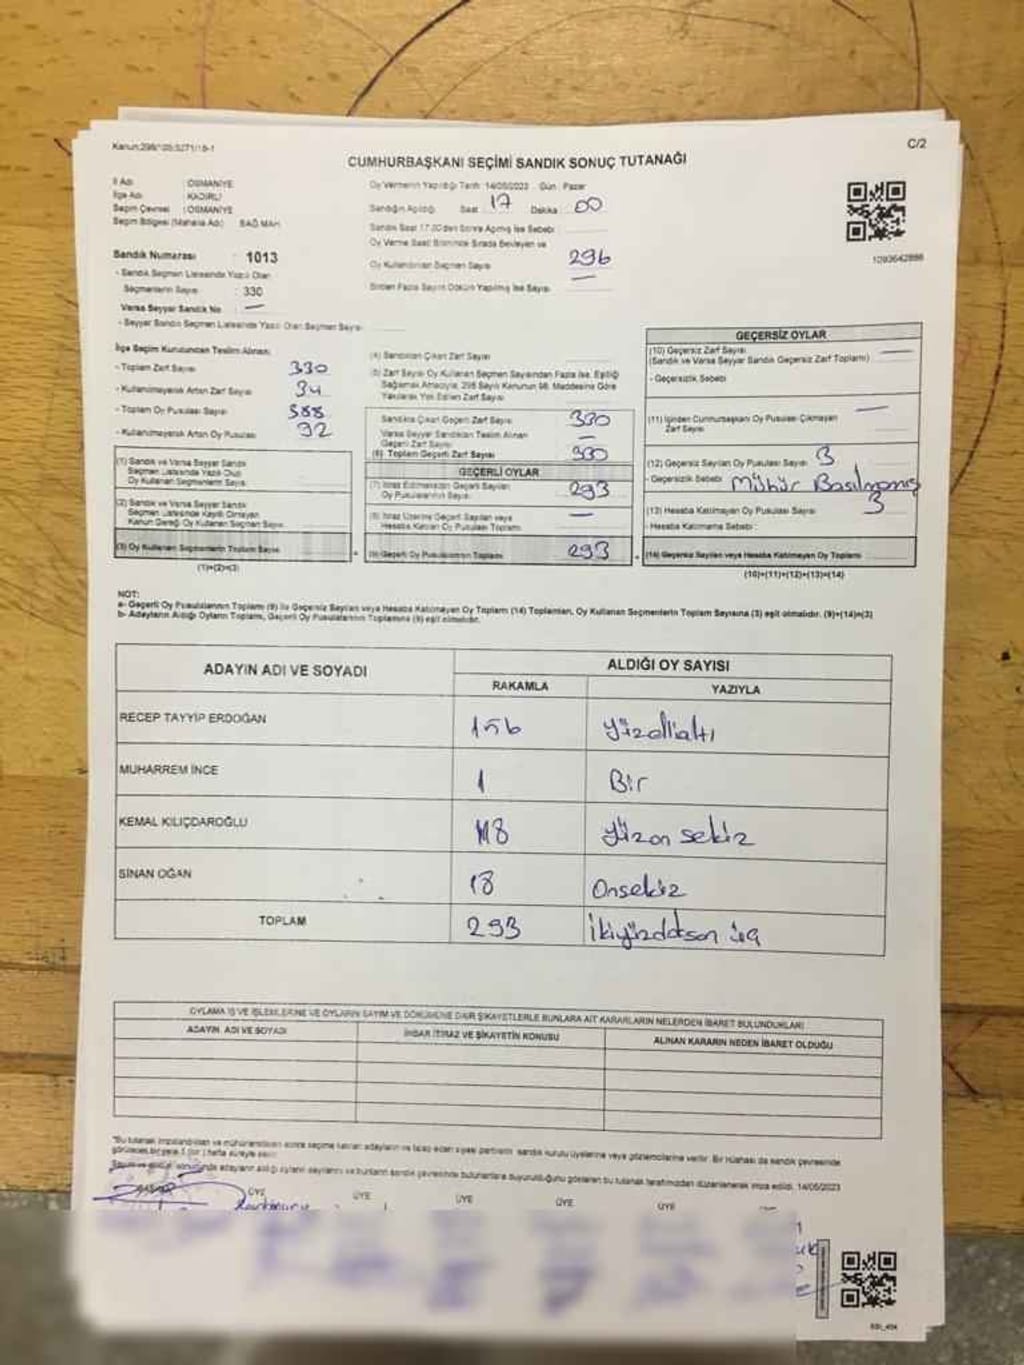 Kanun:298/105;6271/18-1
C/2
CUMHURBAŞKANI SEÇİMİ SANDIK SONUÇ TUTANAĞI
İl Adı : OSMANİYE
İlçe Adı : KADİRLİ
Seçim Çevresi : OSMANİYE
Seçim Bölgesi (Mahalle Adı) : BAĞ MAH
Oy Vermenin Yapıldığı Tarih: 14/05/2023 Gün : Pazar
Sandığın Açıldığı Saat 17 Dakika 00
Sandık Saat 17.00'den Sonra Açılmış İse Sebebi
Oy Verme Saati Bitiminde Sırada Bekleyen ve
Oy Kullandırılan Seçmen Sayısı 296
Birden Fazla Sayım Döküm Yapılmış İse Sayısı —
1093642886
Sandık Numarası : 1013
- Sandık Seçmen Listesinde Yazılı Olan
Seçmenlerin Sayısı : 330
Varsa Seyyar Sandık No —
- Seyyar Sandık Seçmen Listesinde Yazılı Olan Seçmen Sayısı
İlçe Seçim Kurulundan Teslim Alınan:
- Toplam Zarf Sayısı 330
- Kullanılmayarak Artan Zarf Sayısı 34
- Toplam Oy Pusulası Sayısı 388
- Kullanılmayarak Artan Oy Pusulası 92
(1) Sandık ve Varsa Seyyar Sandık
Seçmen Listesinde Yazılı Olup
Oy Kullanan Seçmenlerin Sayısı
(2) Sandık ve Varsa Seyyar Sandık
Seçmen Listesinde Kayıtlı Olmayan
Kanun Gereği Oy Kullanan Seçmen Sayısı
(3) Oy Kullanan Seçmenlerin Toplam Sayısı
(1)+(2)=(3)
(4) Sandıktan Çıkan Zarf Sayısı
(5) Zarf Sayısı Oy Kullanan Seçmen Sayısından Fazla İse, Eşitliği
Sağlamak Amacıyla, 298 Sayılı Kanunun 98. Maddesine Göre
Yakılarak Yok Edilen Zarf Sayısı
Sandıkta Çıkan Geçerli Zarf Sayısı 330
Varsa Seyyar Sandıktan Teslim Alınan
Geçerli Zarf Sayısı —
(6) Toplam Geçerli Zarf Sayısı 330
GEÇERLİ OYLAR
(7) İtiraz Edilmeksizin Geçerli Sayılan
Oy Pusulalarının Sayısı 293
(8) İtiraz Üzerine Geçerli Sayılan veya
Hesaba Katılan Oy Pusulası Toplamı —
(9) Geçerli Oy Pusulalarının Toplamı 293
GEÇERSİZ OYLAR
(10) Geçersiz Zarf Sayısı —
(Sandık ve Varsa Seyyar Sandık Geçersiz Zarf Toplamı)
- Geçersizlik Sebebi
(11) İçinden Cumhurbaşkanı Oy Pusulası Çıkmayan —
Zarf Sayısı
(12) Geçersiz Sayılan Oy Pusulası Sayısı 3
- Geçersizlik Sebebi Mühür Basılmamış
(13) Hesaba Katılmayan Oy Pusulası Sayısı 3
- Hesaba Katılmama Sebebi :
(14) Geçersiz Sayılan veya Hesaba Katılmayan Oy Toplamı
(10)+(11)+(12)+(13)=(14)
NOT:
a- Geçerli Oy Pusulalarının Toplamı (9) ile Geçersiz Sayılan veya Hesaba Katılmayan Oy Toplamı (14) Toplamları, Oy Kullanan Seçmenlerin Toplam Sayısına (3) eşit olmalıdır. (9)+(14)=(3)
b- Adayların Aldığı Oyların Toplamı, Geçerli Oy Pusulalarının Toplamına (9) eşit olmalıdır.
ADAYIN ADI VE SOYADI
ALDIĞI OY SAYISI
RAKAMLA YAZIYLA
RECEP TAYYİP ERDOĞAN 156 Yüzellialtı
MUHARREM İNCE 1 Bir
KEMAL KILIÇDAROĞLU 118 Yüzon sekiz
SİNAN OĞAN 18 Onsekiz
TOPLAM 293 İkiyüzdoksan üç
OYLAMA İŞ VE İŞLEMLERİNE VE OYLARIN SAYIM VE DÖKÜMÜNE DAİR ŞİKAYETLERLE BUNLARA AİT KARARLARIN NELERDEN İBARET BULUNDUKLARI
ADAYIN ADI VE SOYADI İHBAR İTİRAZ VE ŞİKAYETİN KONUSU ALINAN KARARIN NEDEN İBARET OLDUĞU
14/05/2023
BAŞKAN ÜYE ÜYE ÜYE ÜYE ÜYE